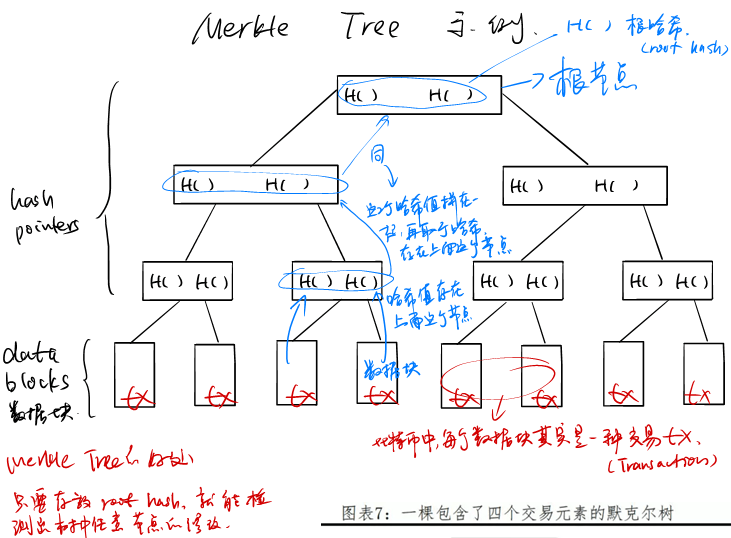 Merkle Tree 示例.
H( ) 根哈希.
(root hash)
H( ) H( )
根节点
hash
pointers
H( ) H( )
H( ) H( )
同
这个哈希值拼在一
起,再取个哈希.
存在上面这个节点
H( ) H( )
H( ) H( )
H( ) H( )
H( ) H( )
哈希值存在
上面这个节点
data
blocks
数据块.
数据块
tx
tx
tx
tx
tx
tx
tx
tx
比特币中,每个数据块其实是一种交易tx.
(Transaction)
Merkle Tree的好处:
只要存放root hash,就能检
测出树中任意节点的修改.
图表7:一棵包含了四个交易元素的默克尔树